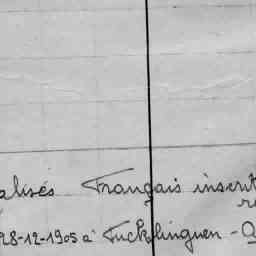 alisés Français inscrit
28-12-1905 à Tucklinguen -